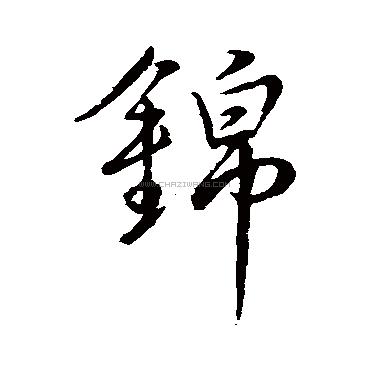 錦
WWW.CHAZIWANG.COM